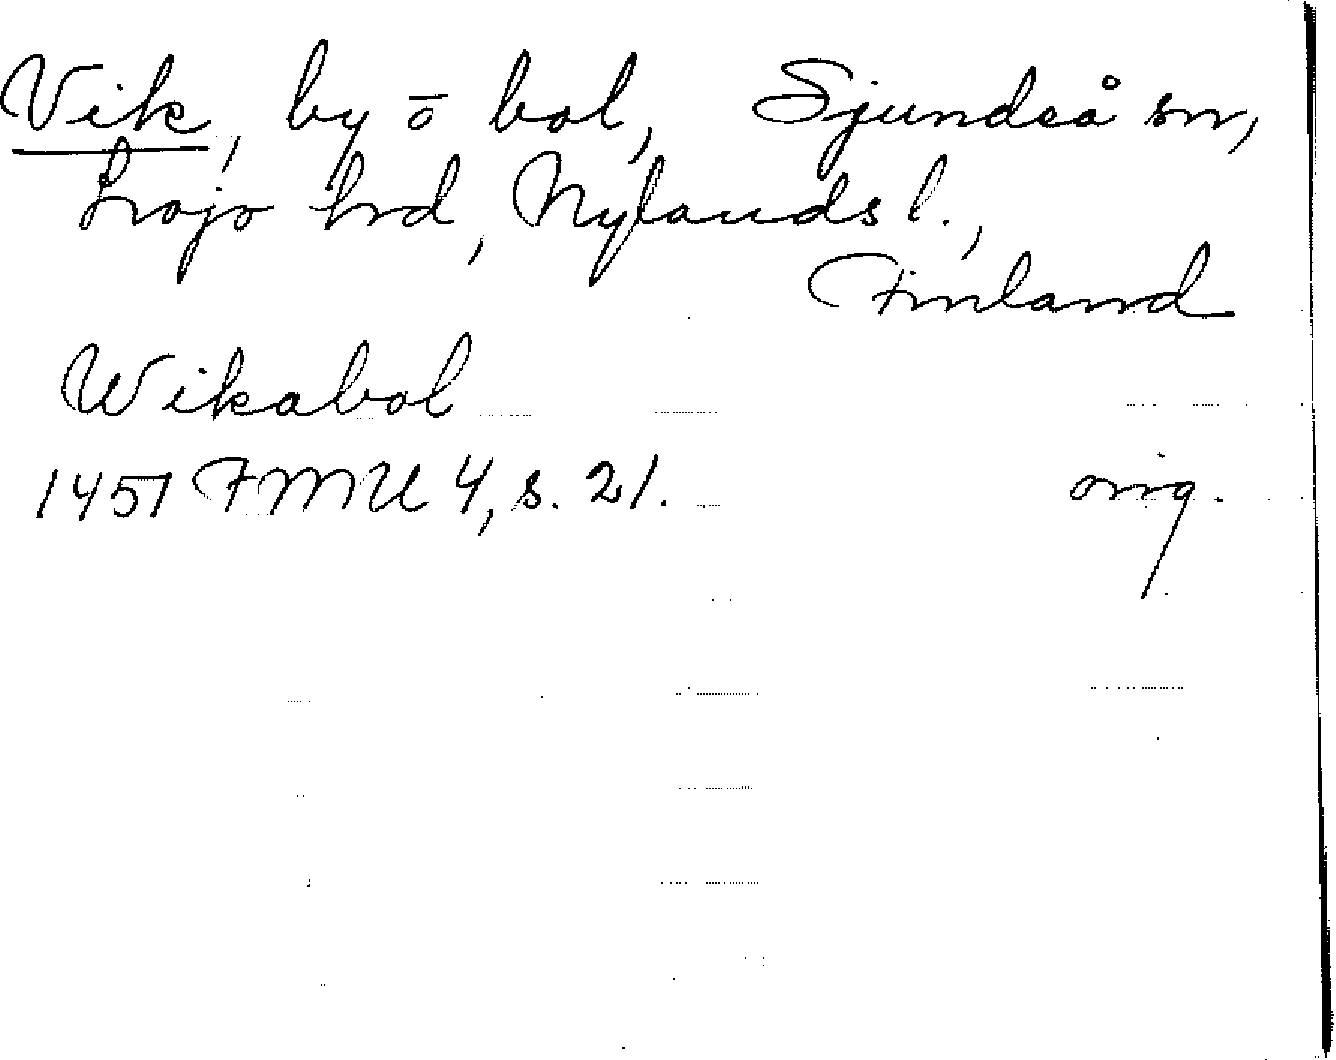 Vik, by o bol, Sjundeå sn,
Lojo hrd, Nylands l.,
Finland
Wikabol
1451 FMU 4, s. 21. orig.